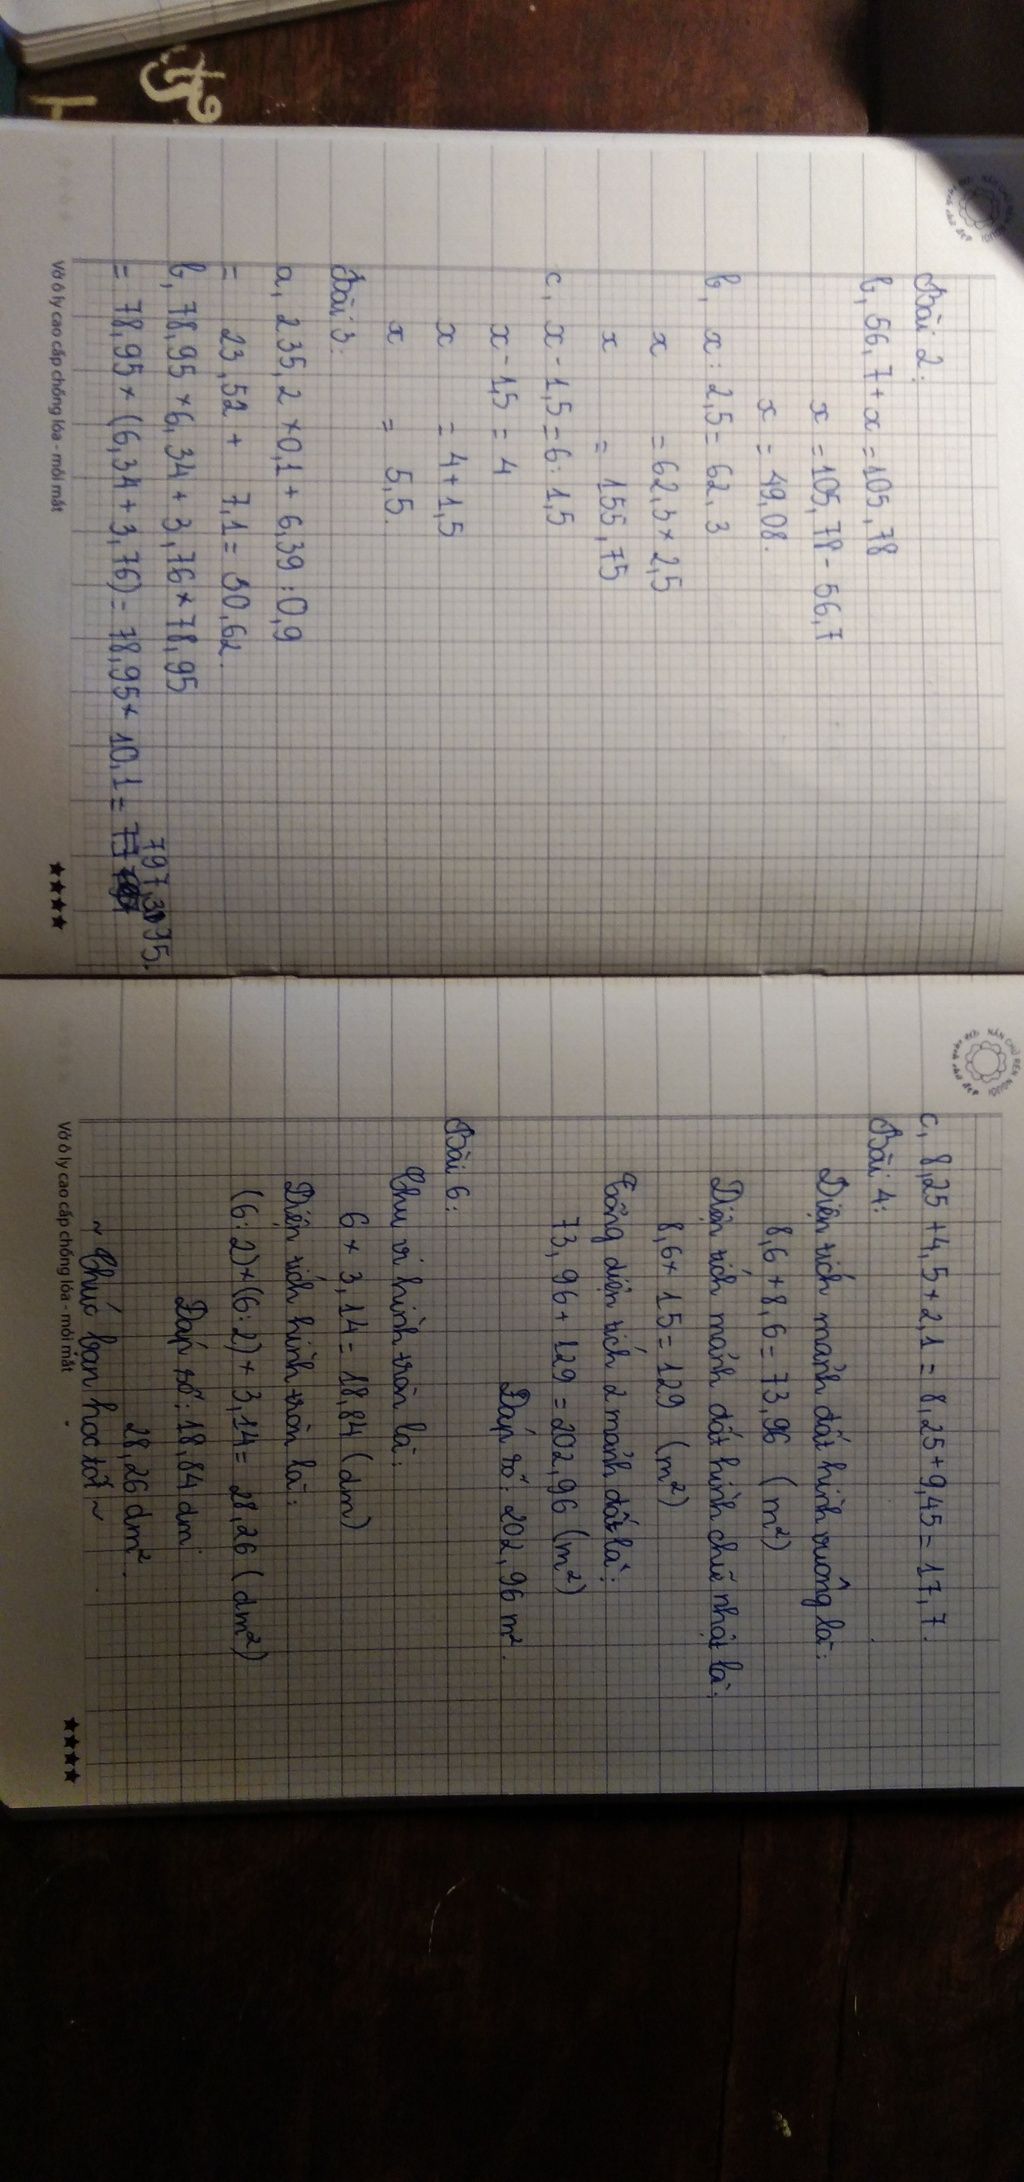 Bài 2:
b, 56,7 + x = 105,78
x = 105,78 - 56,7
x = 49,08.
b, x : 2,5 = 62,3
x = 62,3 × 2,5
x = 155,75
c, x - 1,5 = 6 : 1,5
x - 1,5 = 4
x = 4 + 1,5
x = 5,5.
Bài 3:
a, 235,2 × 0,1 + 6,39 : 0,9
= 23,52 + 7,1 = 30,62.
b, 78,95 × 6,34 + 3,76 × 78,95
= 78,95 × (6,34 + 3,76) = 78,95 × 10,1 = 797,395.
Vở ô ly cao cấp chống lóa - mỏi mắt
c, 8,25 + 4,5 × 2,1 = 8,25 + 9,45 = 17,7.
Bài 4:
Diện tích mảnh đất hình vuông là:
8,6 × 8,6 = 73,96 (m²)
Diện tích mảnh đất hình chữ nhật là:
8,6 × 15 = 129 (m²)
Tổng diện tích 2 mảnh đất là:
73,96 + 129 = 202,96 (m²)
Đáp số: 202,96 m².
Bài 6:
Chu vi hình tròn là:
6 × 3,14 = 18,84 (dm)
Diện tích hình tròn là:
(6:2) × (6:2) × 3,14 = 28,26 (dm²)
Đáp số: 18,84 dm
28,26 dm².
~ Chúc bạn học tốt ~
Vở ô ly cao cấp chống lóa - mỏi mắt